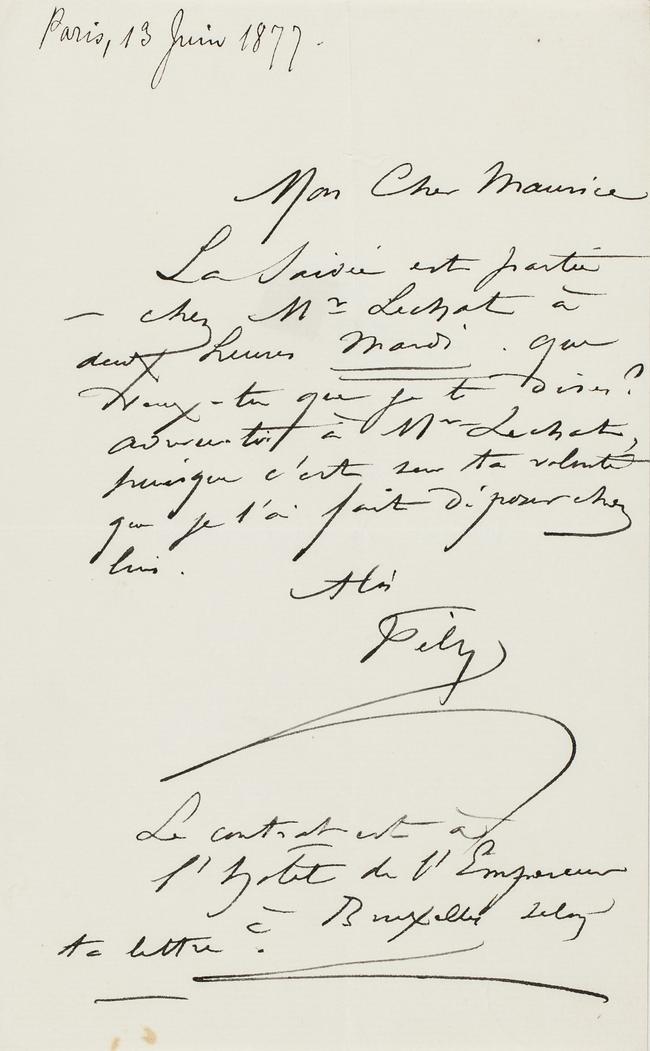 Paris, 13 Juin 1877.
Mon Cher Maurice
La Saisie est partie
– chez Mr Lechat à
deux heures Mardi. que
veux-tu que je te dises?
à Mr Lechat,
puisque c'est sur ta volonté
que je l'ai fait déposer chez
lui.
Fély
Le contrat est à
l'hotel de l'Empereur
à Bruxelles selon
ta lettre.